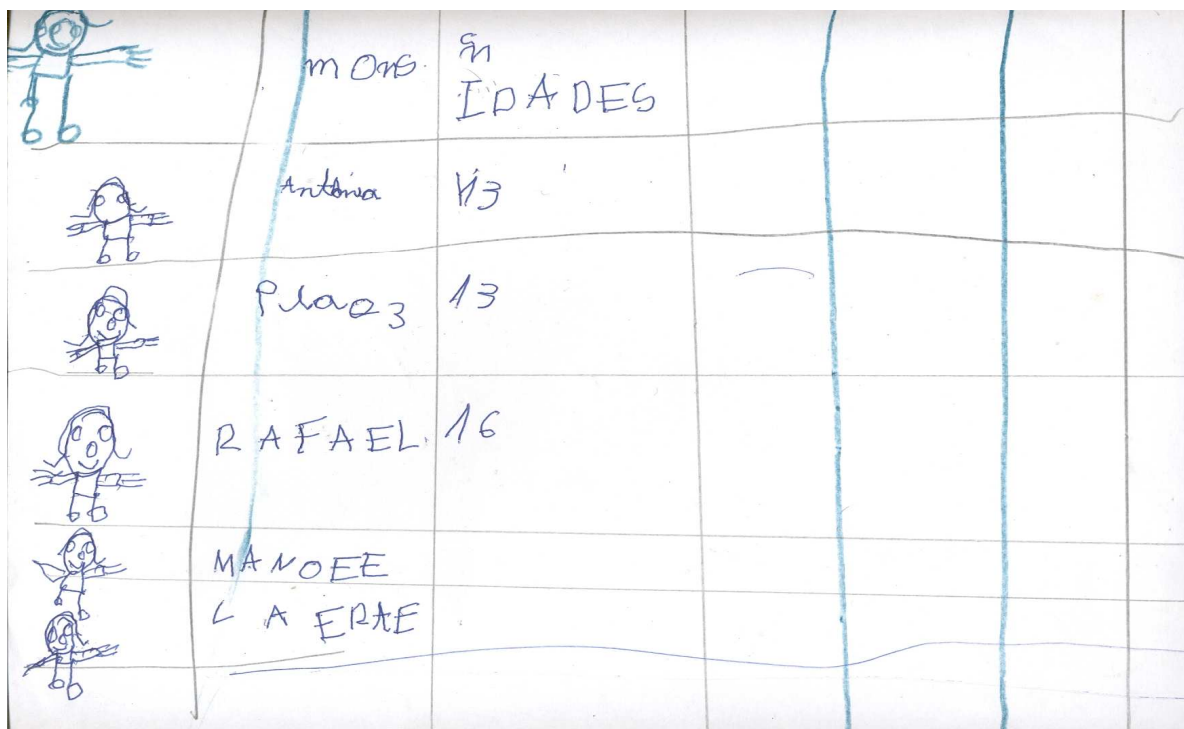 mons.
IDADES
Antônia 13
13
RAFAEL. 16
MANOEE
LAERAE